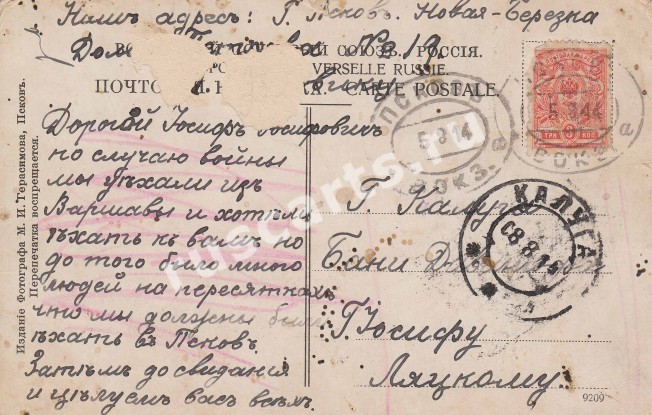 Нашъ адресъ: Г. Псковъ. Новая-Березка
Домъ № 19.
СОЮЗЪ. РОССІЯ.
VERSELLE RUSSIE.
ПОЧТО
CARTE POSTALE.
Дорогой Іосифъ Іосифовичъ
по случаю войны
мы уѣхали изъ
Варшавы и хотѣли
ѣхать къ вамъ но
до того было много
людей на
что мы должны были
ѣхать въ Псковъ.
Затѣмъ до свиданія
и цѣлуемъ васъ всѣхъ.
Изданіе Фотографа М. И. Герасимова, Псковъ.
Перепечатка воспрещается.
ПСКОВЪ
5 8 14
ВОКЗ.
в
5 8 14
ВОКЗ.
а
ТРИ КОП
Г. Калуга
КАЛУГА
08 8 14
Бани
Г. Іосифу
Ляцкому
9209
ruscarts.ru